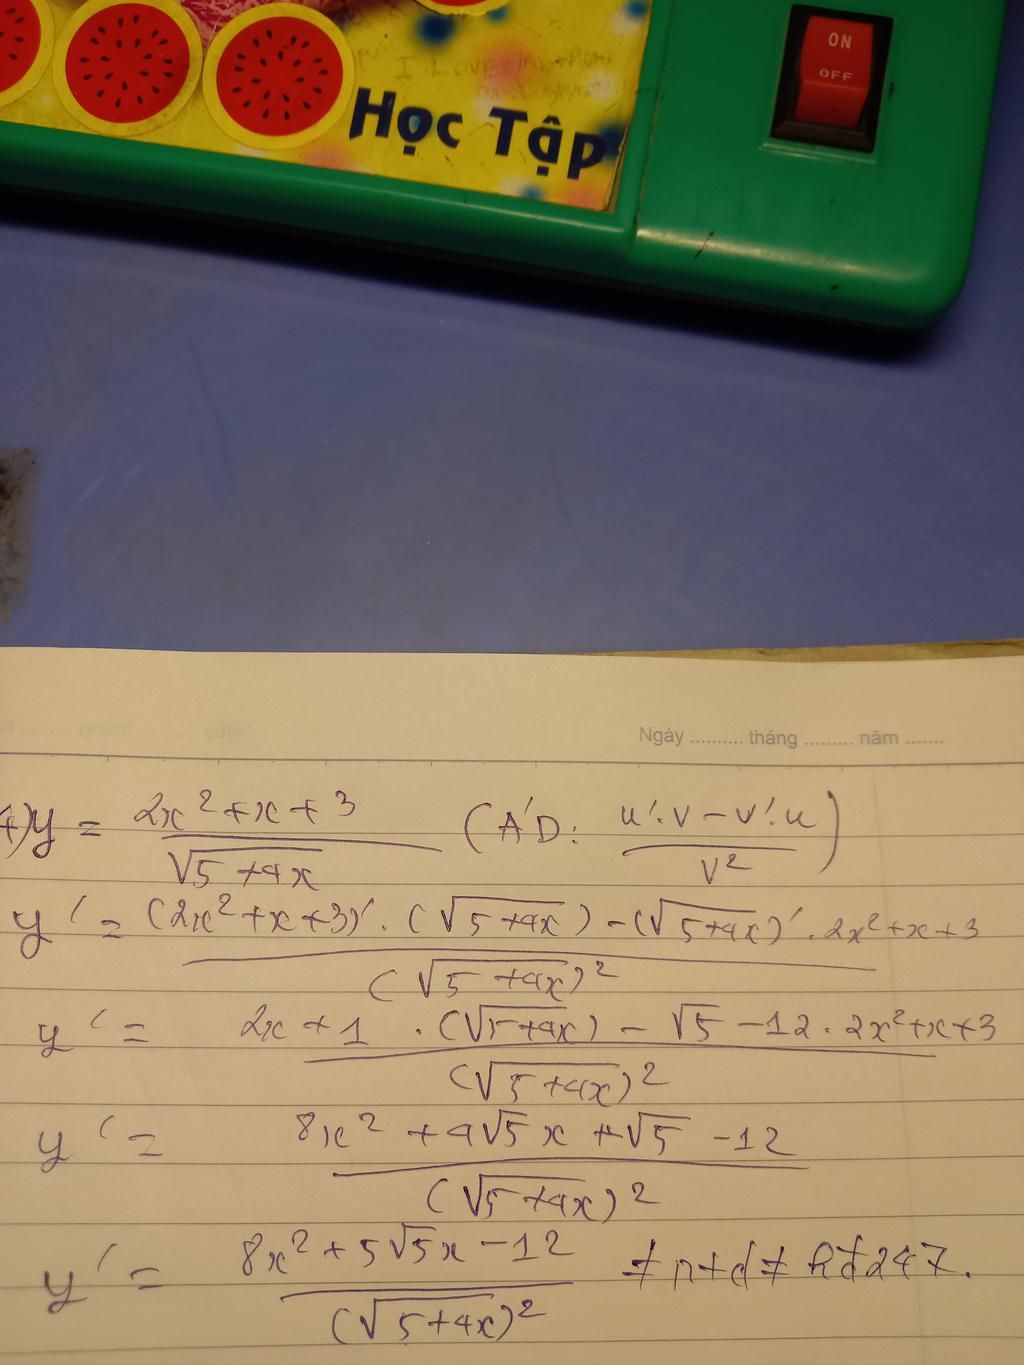 ON
OFF
Học Tập
Ngày .......... tháng ......... năm .......
4) y = (2x² + x + 3) / √(5+4x) (A'D: (u'.v - v'.u) / v²)
y' = ((2x² + x + 3)' . (√(5+4x)) - (√(5+4x))' . 2x² + x + 3) / (√(5+4x))²
y' = (2x + 1 . (√(5+4x)) - √5 - 12 . 2x² + x + 3) / (√(5+4x))²
y' = (8x² + 4√5x + √5 - 12) / (√(5+4x))²
y' = (8x² + 5√5x - 12) / (√(5+4x))²